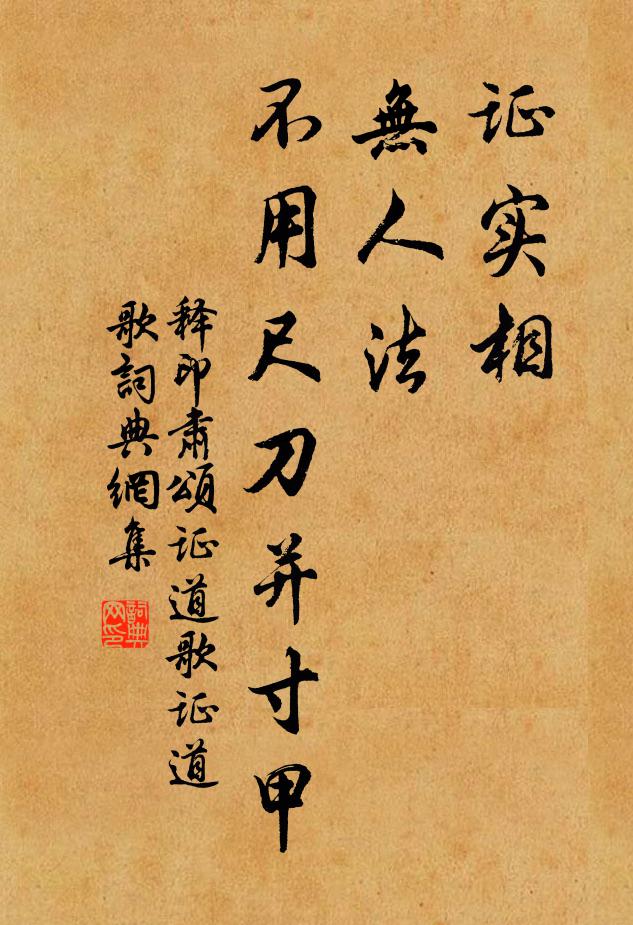 证实相
無人法
不用尺刀并寸甲
释印肃頌证道歌证道
歌詞典網集
詞典网印